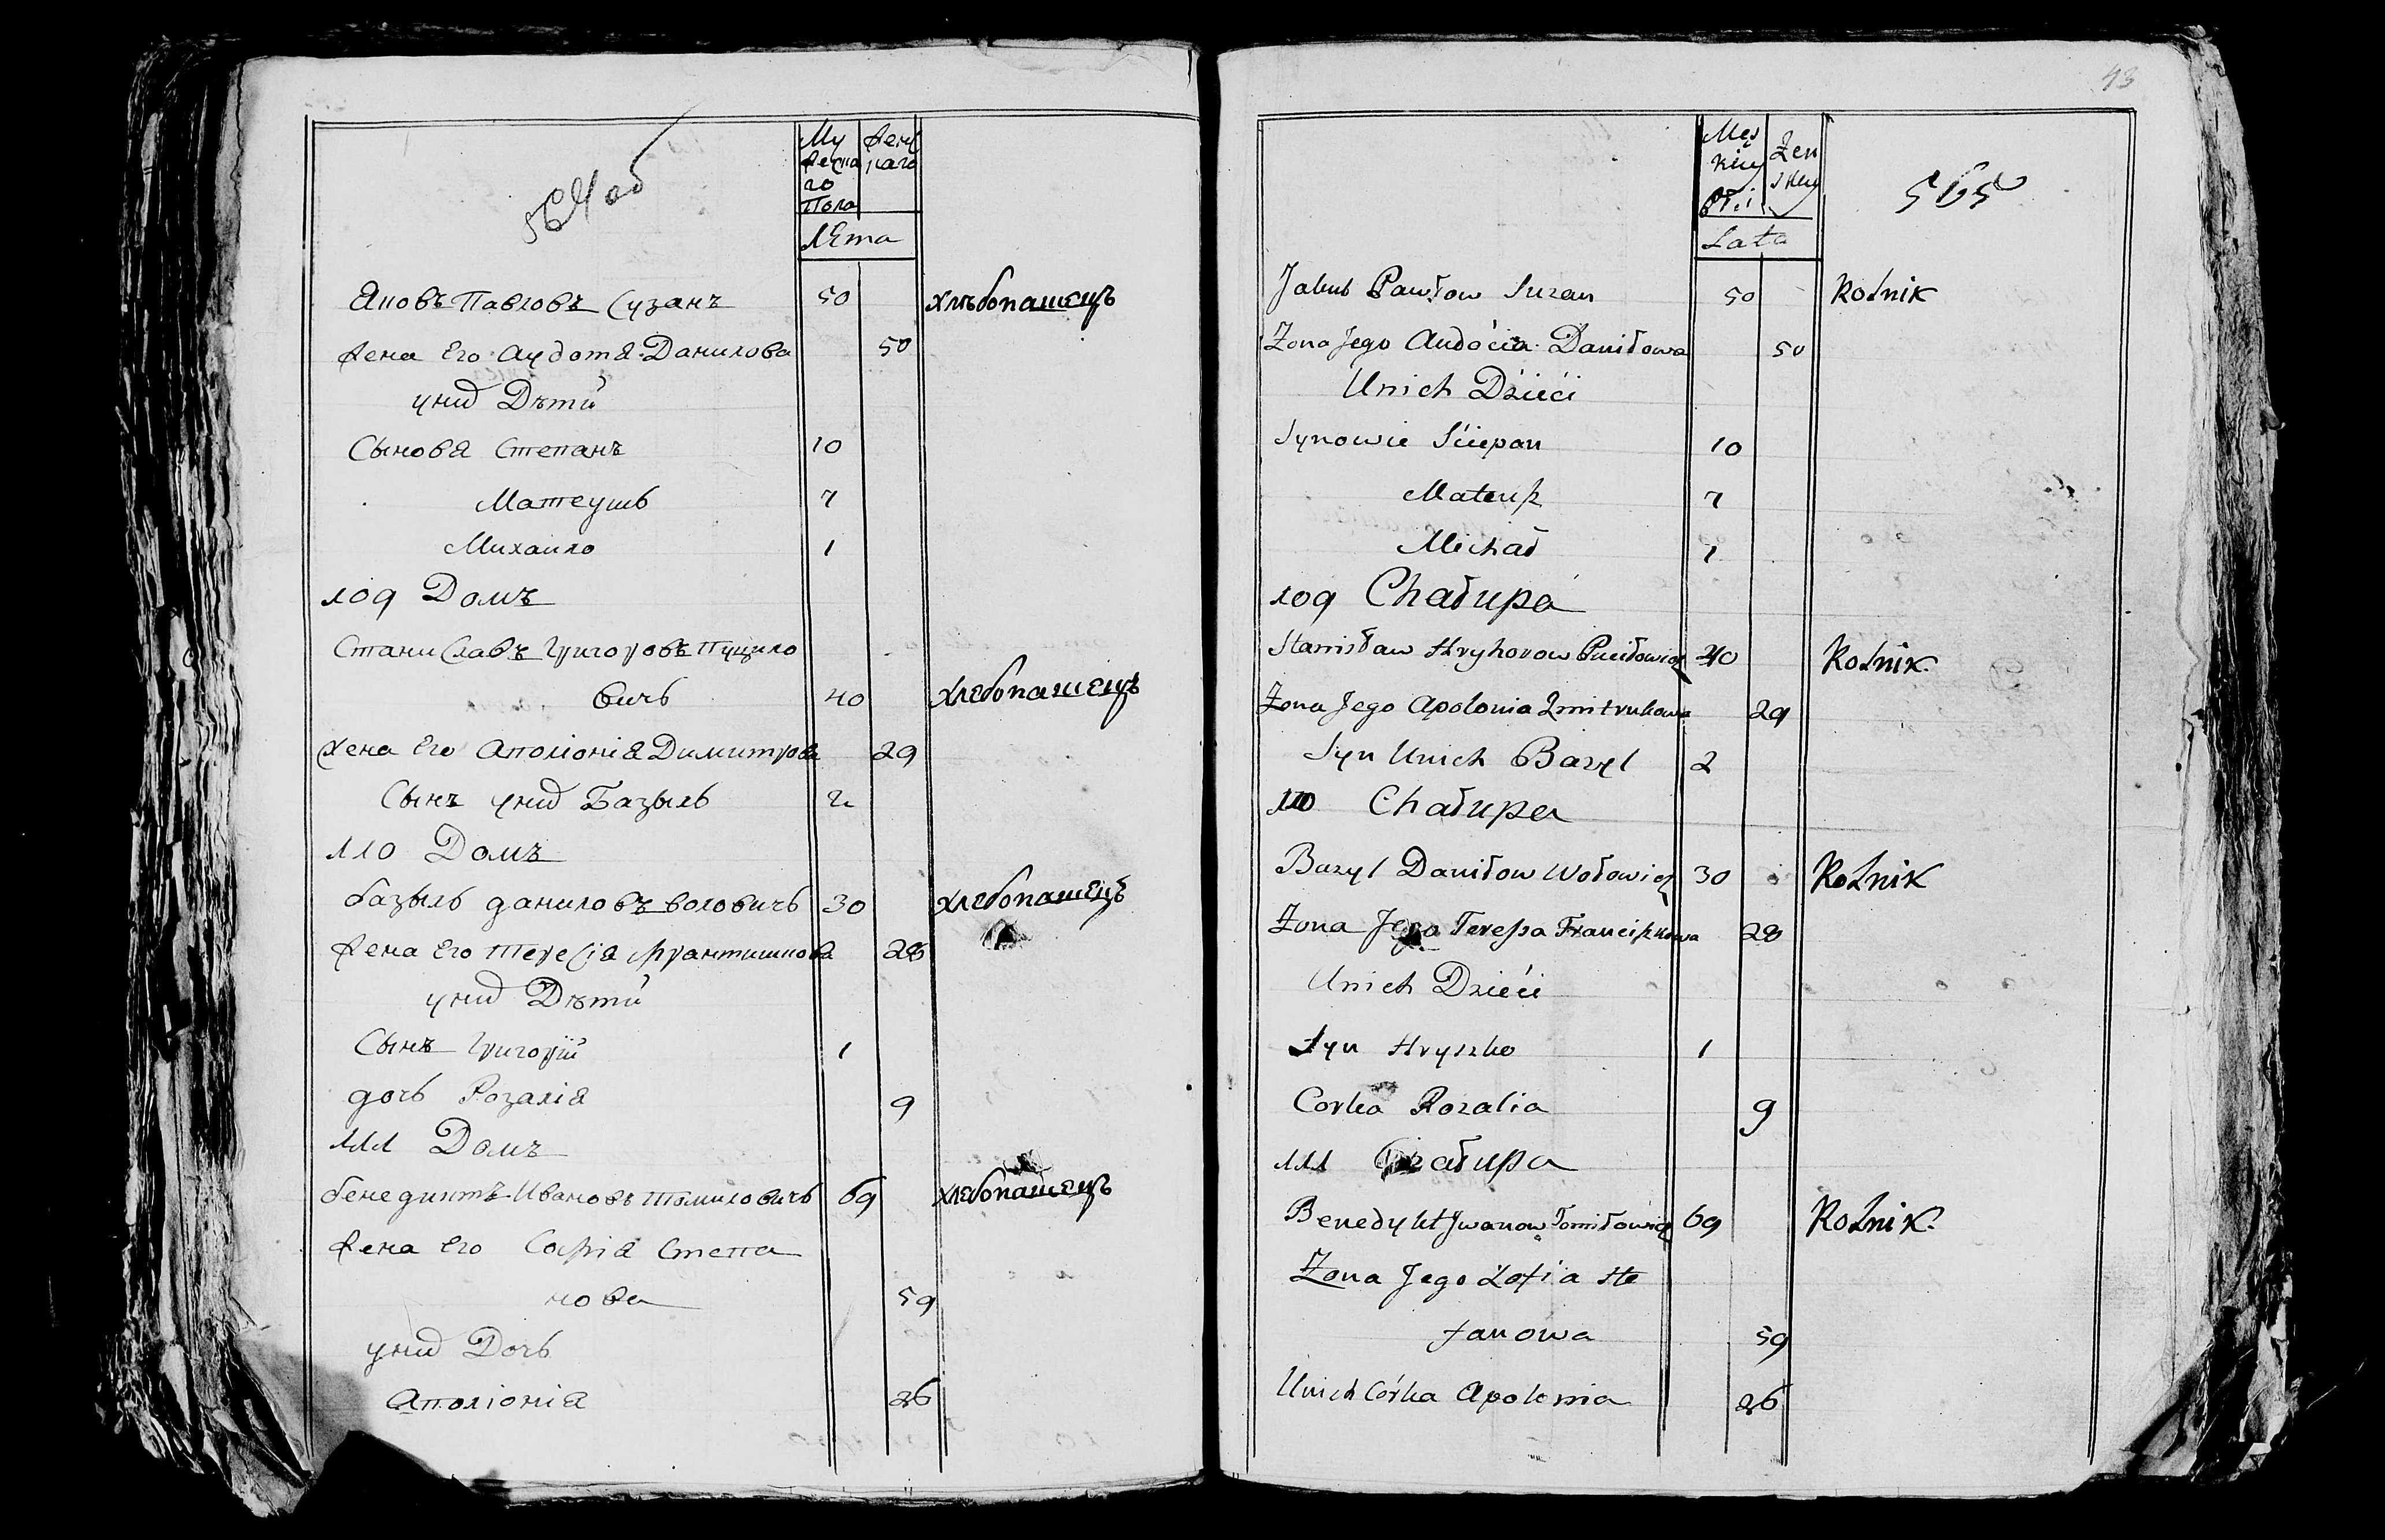 Му
жеска
го
Пола
Жень
скаго
Лѣта
Яковъ Павловъ Сузанъ 50 хлѣбопашецъ
Жена Его Аудотя Данилова 50
у них Дѣти
Сыновя Степанъ 10
Матеушъ 7
Михаило 1
109 Домъ
Станиславъ Григоровъ Пуцило
вичъ 40 хлебопашецъ
Жена Его Аполіонія Димитрова 29
Сынъ у них Базыль 2
110 Домъ
базыль даниловъ воловичъ 30 хлебопашецъ
Жена Его Тересія Франтишкова 28
у них Дѣти
Сынъ Григорій 1
дочь Розалія 9
111 Домъ
бенедиктъ Ивановъ Томиловичъ 69 хлебопашецъ
Жена Его Софія Степа
нова 59
у них Дочь
Аполіонія 26
43
Męs
kiey
Płci
Żen
skiey
565
Lata
Jakub Pawłow Suzan 50 Rolnik
Żona Jego Audocia Daniłowa 50
Unich Dzieci
Synowie Sciepan 10
Mateusz 7
Michał 1
109 Chałupa
Stanisław Hryhorow Puciłowicz 40 Rolnik.
Żona Jego Apolonia Zmitrukowa 29
Syn Unich Bazyl 2
110 Chałupa
Bazyl Daniłow Wołowicz 30 Rolnik
Żona Jego Teressa Franciszkowa 28
Unich Dzieci
Syn Hryszko 1
Corka Rozalia 9
111 Chałupa
Benedykt Jwanow Tomiłowicz 69 Rolnik.
Żona Jego Zofia Ste
fanowa 59
Unich Córka Apolonia 26